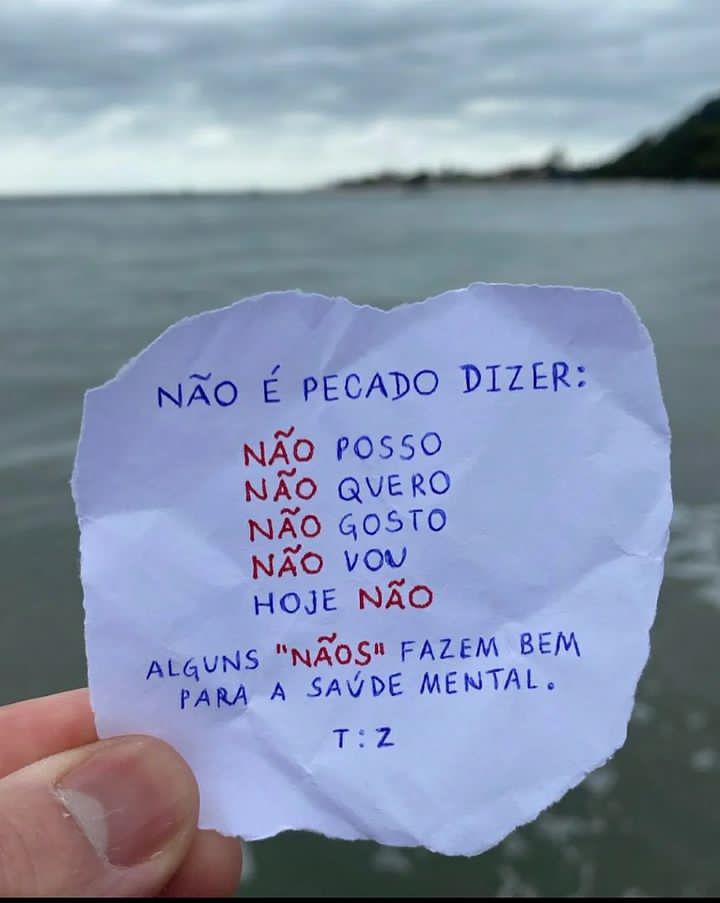 NÃO É PECADO DIZER:
NÃO POSSO
NÃO QUERO
NÃO GOSTO
NÃO VOU
HOJE NÃO
ALGUNS "NÃOS" FAZEM BEM
PARA A SAÚDE MENTAL.
T:Z